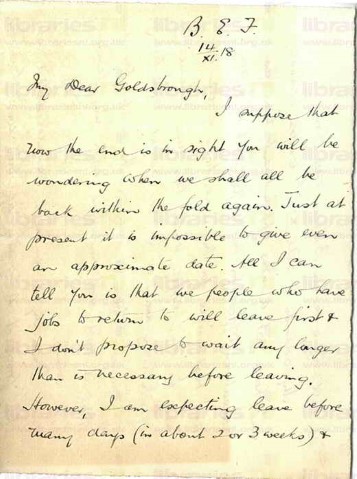 B. E. F.
14.
XI. 18
My Dear Goldsbrough,
I suppose that
now the end is in sight you will be
wondering when we shall all be
back within the fold again. Just at
present it is impossible to give even
an approximate date. All I can
tell you is that we people who have
jobs to return to will leave first &
I don't propose to wait any longer
than is necessary before leaving.
However, I am expecting leave before
many days (in about 2 or 3 weeks) &